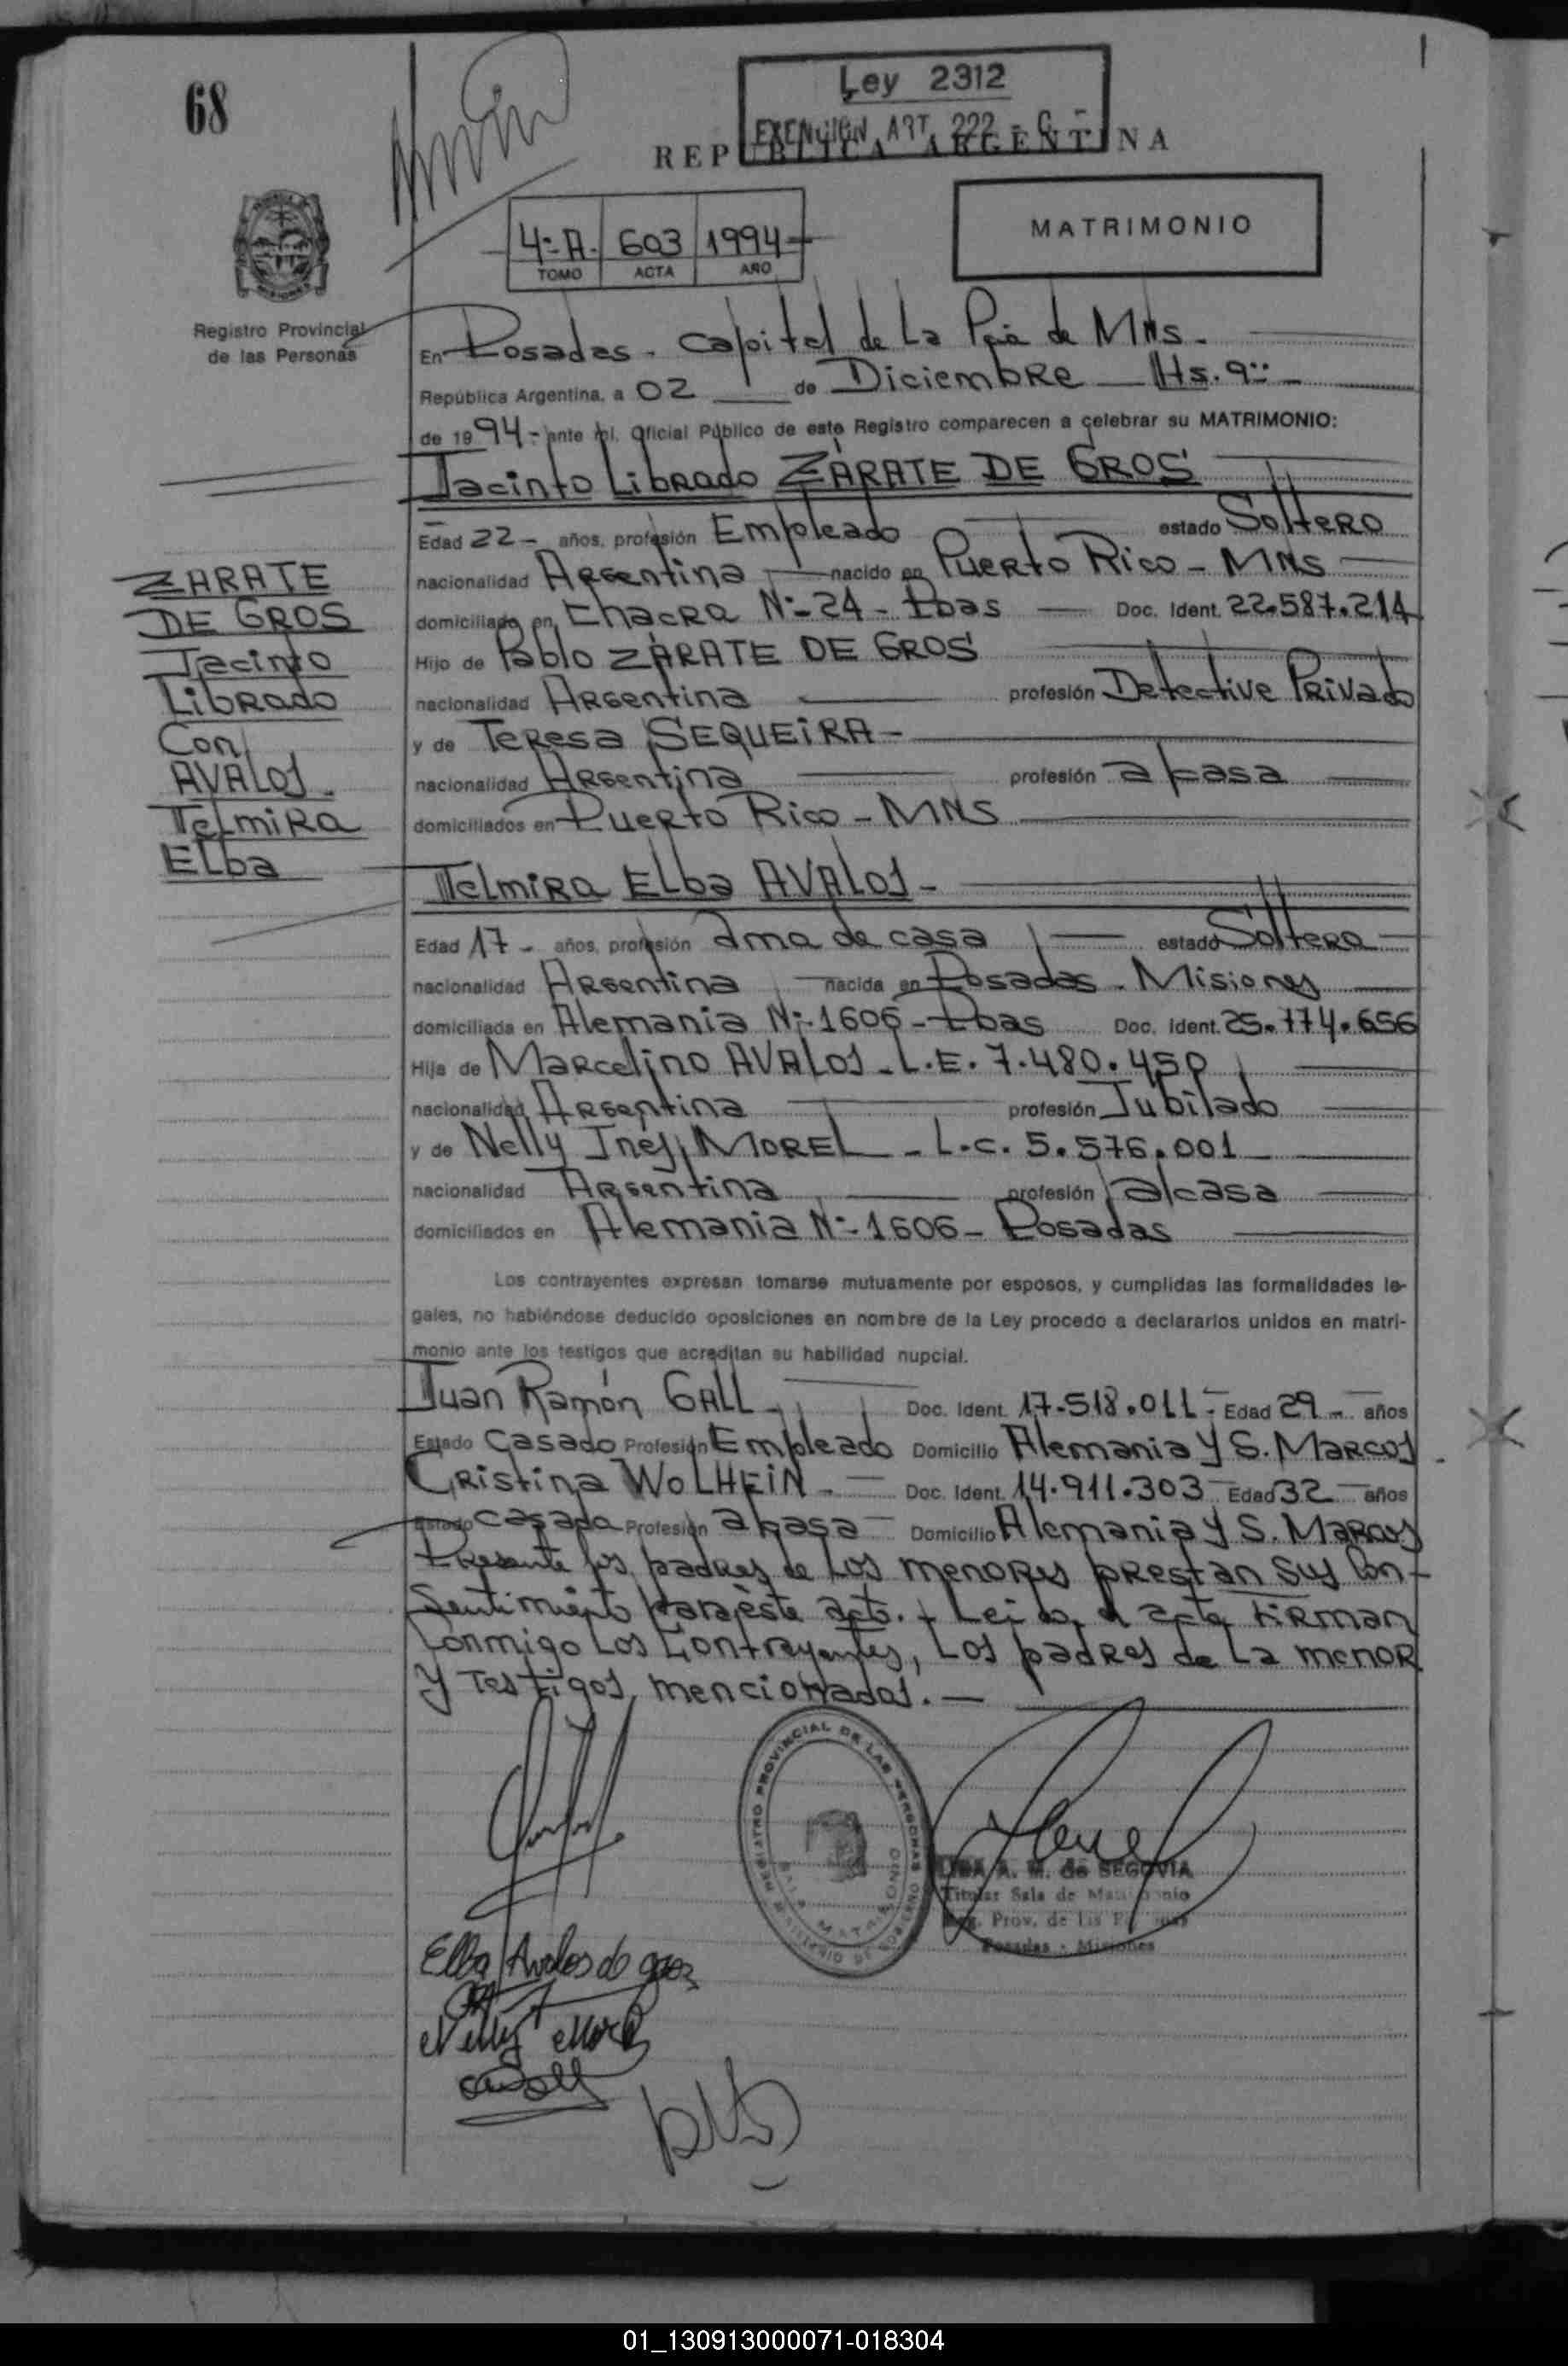 68
Ley 2312
EXENCION ART. 222 - C -
REPUBLICA ARGENTINA
MATRIMONIO
4º A. 603 1994
TOMO ACTA AÑO
Registro Provincial
de las Personas
En Posadas. Capital de La Pcia de Mns.
República Argentina, a 02 de Diciembre Hs. 9
de 1994 - ante mi, Oficial Público de este Registro comparecen a celebrar su MATRIMONIO:
Jacinto Librado ZÁRATE DE GROS
Edad 22 - años, profesión Empleado estado Soltero
nacionalidad Argentina nacido en Puerto Rico - MNS
domiciliado en Chacra Nº 24 - Pdas Doc. Ident. 22.587.214
Hijo de Pablo ZÁRATE DE GROS
nacionalidad Argentina profesión Detective Privado
y de Teresa SEQUEIRA -
nacionalidad Argentina profesión a/casa
domiciliados en Puerto Rico - MNS
ZARATE
DE GROS
Jacinto
Librado
Con
AVALOS.
Telmira
Elba
Telmira Elba AVALOS -
Edad 17 - años, profesión ama de casa estado Soltera
nacionalidad Argentina nacida en Posadas - Misiones
domiciliada en Alemania Nº 1606 - Pdas Doc. Ident. 25.774.656
Hija de Marcelino AVALOS - L.E. 7.480.450
nacionalidad Argentina profesión Jubilado
y de Nelly Inés MOREL - L.C. 5.576.001
nacionalidad Argentina profesión a/casa
domiciliados en Alemania Nº 1606 - Posadas
Los contrayentes expresan tomarse mutuamente por esposos, y cumplidas las formalidades le-
gales, no habiéndose deducido oposiciones en nombre de la Ley procedo a declararlos unidos en matri-
monio ante los testigos que acreditan su habilidad nupcial.
Juan Ramón GALL - Doc. Ident. 17.518.011 - Edad 29 - años
Estado Casado Profesión Empleado Domicilio Alemania y S. Marcos
Cristina WOLHEIN - Doc. Ident. 14.911.303 Edad 32 años
Estado casada Profesión a/casa Domicilio Alemania y S. Marcos
Presente los padres de los menores prestan sus Con-
sentimiento para éste acto. - Leída el acta firman
Conmigo Los Contrayentes, Los padres de La menor
y Testigos mencionados. -
REGISTRO PROVINCIAL DE LAS PERSONAS
MINISTERIO DE GOBIERNO
SALA MATRIMONIO
A. M. de SEGOVIA
Titular Sala de Matrimonio
Reg. Prov. de las Personas
Posadas - Misiones
Elba Avalos de
Nelly Morel
01_130913000071-018304